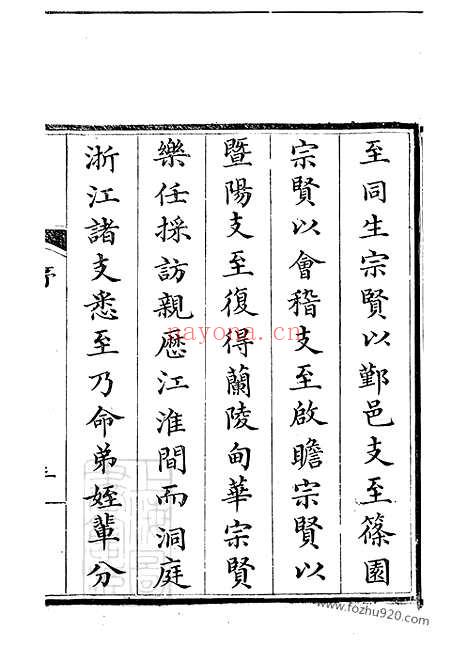 至同生宗賢以鄞邑支至篠園
宗賢以會稽支至啟瞻宗賢以
暨陽支至復得蘭陵甸華宗賢
樂任採訪親歷江淮間而洞庭
浙江諸支悉至乃命弟姪輩分
序
nayona.cn
www.fozhu920.com